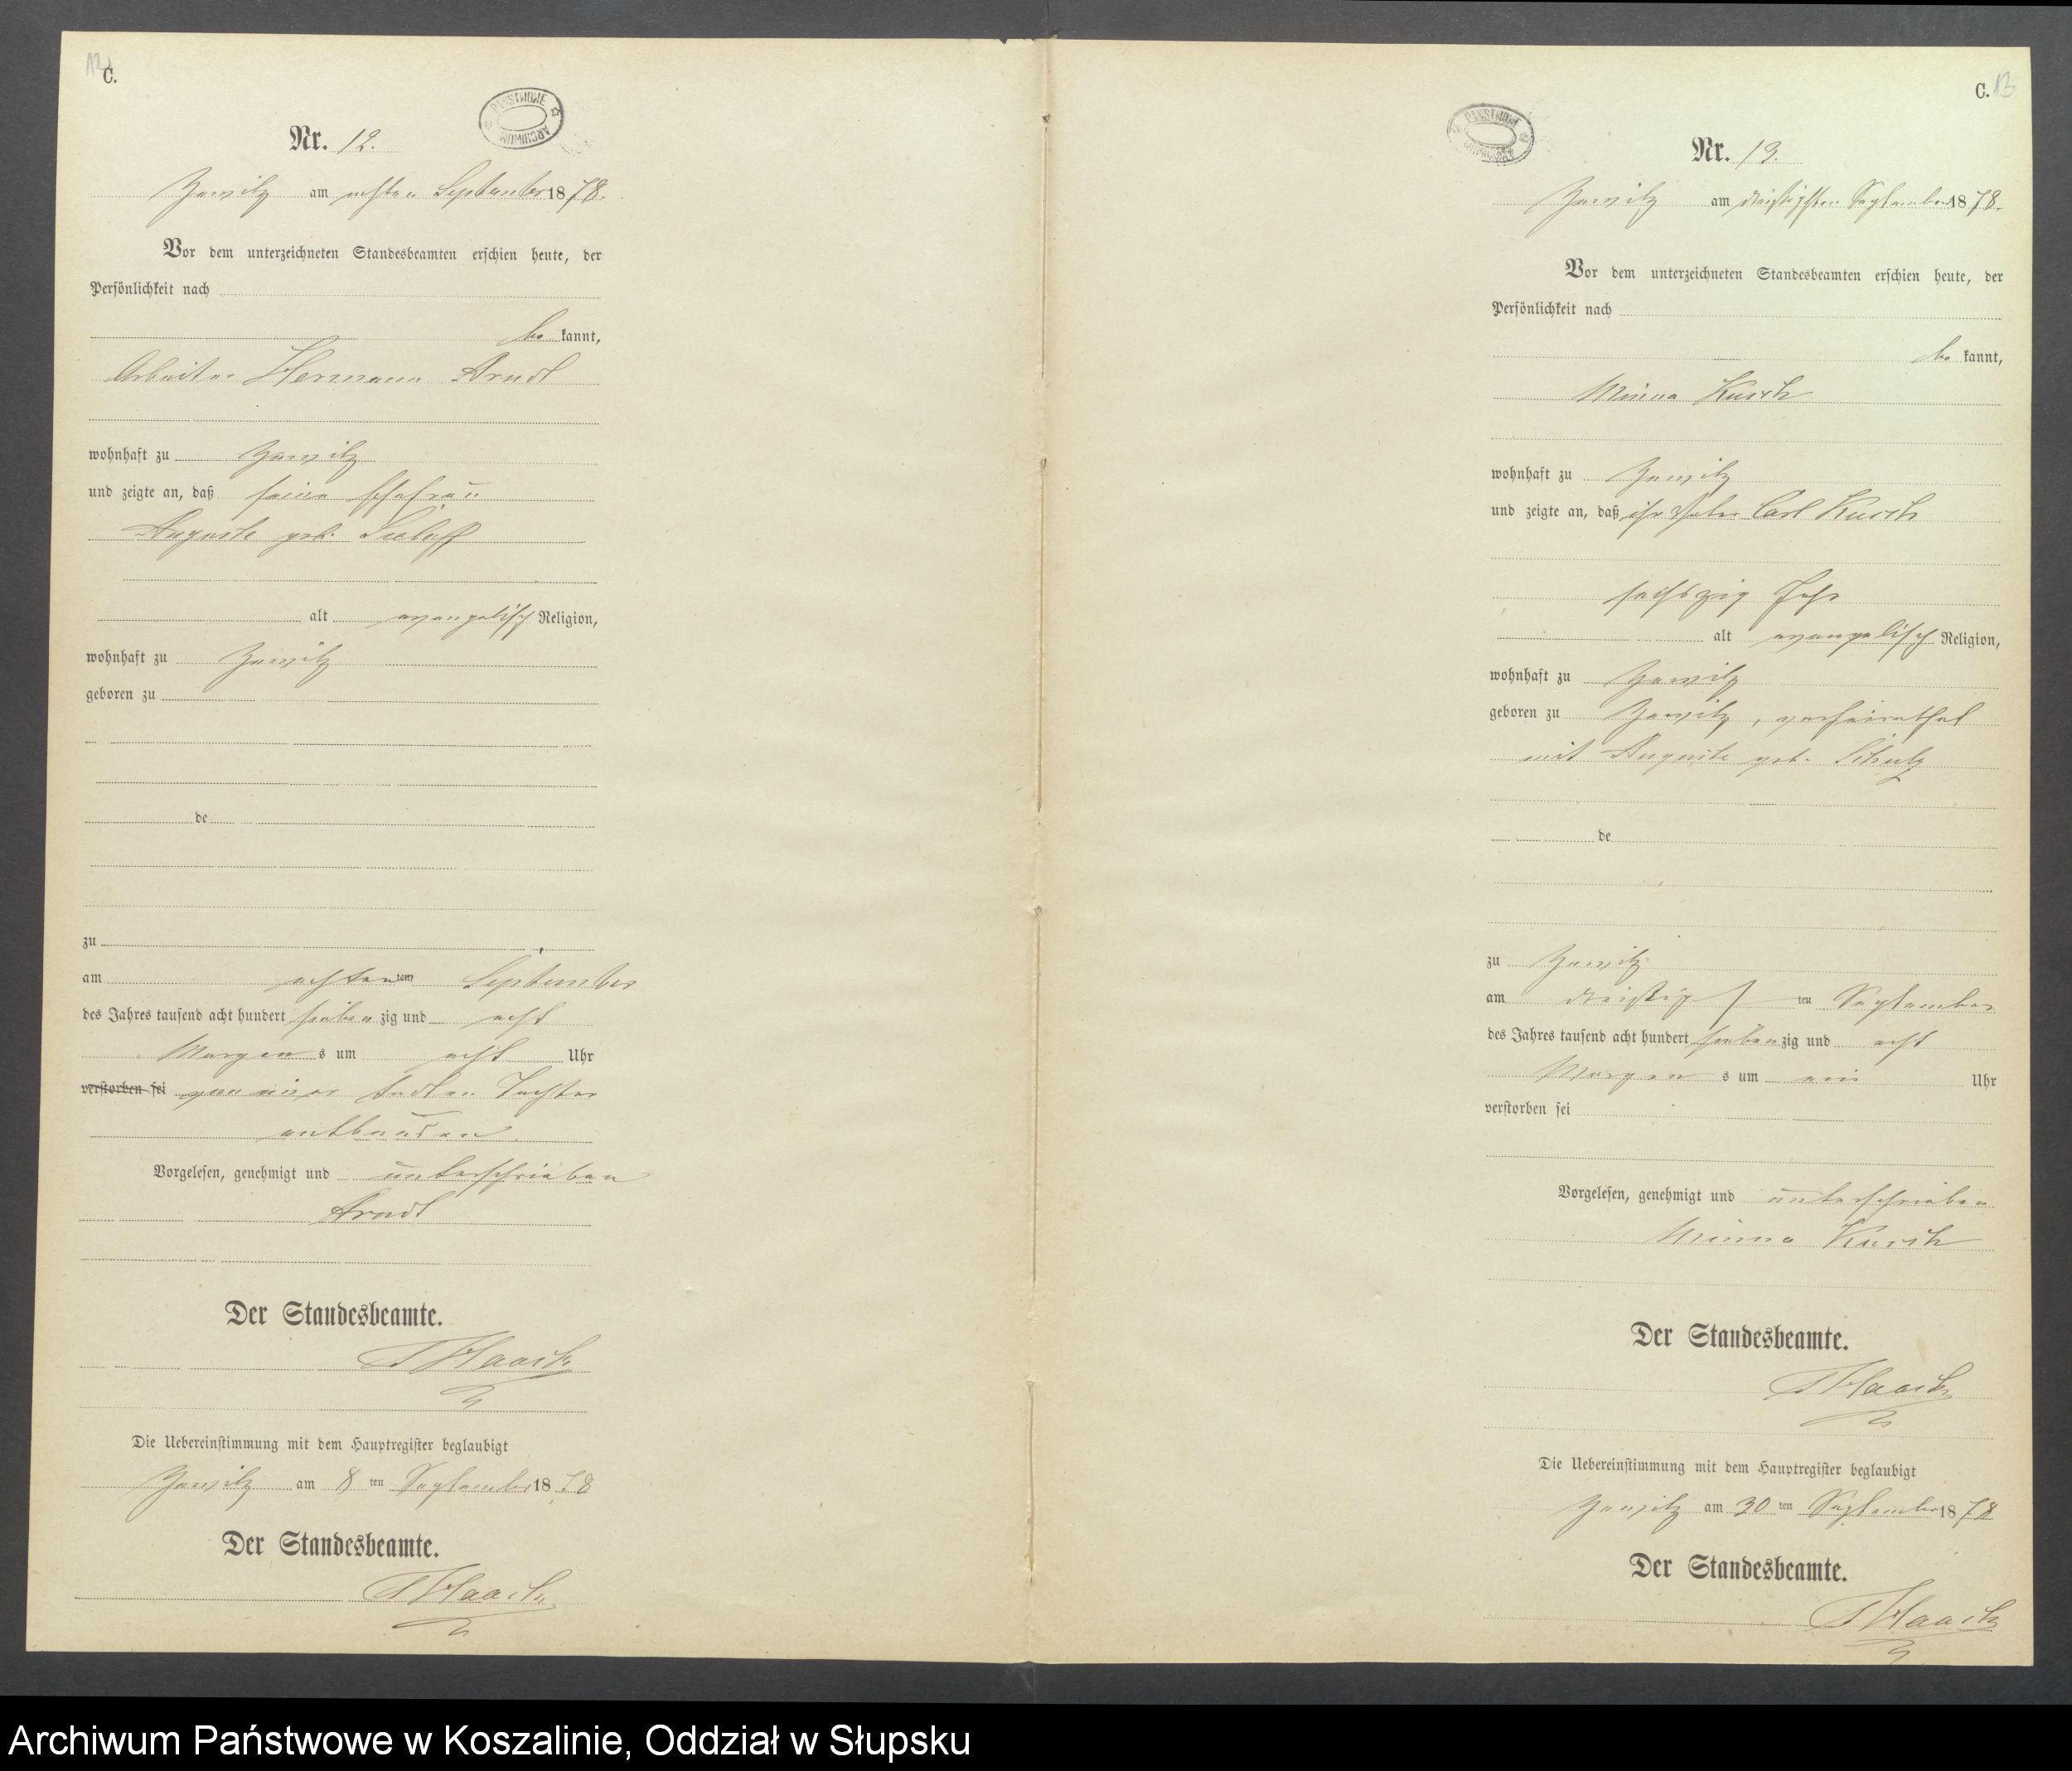 12
C.
PAŃSTWOWE ARCHIWUM
Nr. 12.
am achten September 1878.
Vor dem unterzeichneten Standesbeamten erschien heute, der
Persönlichkeit nach
be kannt,
Arbeiter Hermann Arndt
wohnhaft zu
und zeigte an, daß seine Ehefrau
Auguste geb.
alt evangelisch Religion,
wohnhaft zu
geboren zu
de
zu
am achten ten September
des Jahres tausend acht hundert sieben zig und acht
Morgen s um acht Uhr
verstorben sei von einer todten Tochter
entbunden
Vorgelesen, genehmigt und unterschrieben
Arndt
Der Standesbeamte.
Haack
Die Uebereinstimmung mit dem Hauptregister beglaubigt
am 8 ten September 1878
Der Standesbeamte.
Haack
C. 13
PAŃSTWOWE ARCHIWUM
Nr. 13.
am dreißigsten September 1878.
Vor dem unterzeichneten Standesbeamten erschien heute, der
Persönlichkeit nach
be kannt,
Minna Kusch
wohnhaft zu
und zeigte an, daß ihr Vater Carl Kusch
sechszig Jahr
alt evangelisch Religion,
wohnhaft zu
geboren zu , verheirathet
mit Auguste geb. Schulz
de
zu
am dreißigs ten September
des Jahres tausend acht hundert sieben zig und acht
Morgen s um ein Uhr
verstorben sei
Vorgelesen, genehmigt und unterschrieben
Minna Kusch
Der Standesbeamte.
Haack
Die Uebereinstimmung mit dem Hauptregister beglaubigt
am 30 ten September 1878
Der Standesbeamte.
Haack
Archiwum Państwowe w Koszalinie, Oddział w Słupsku